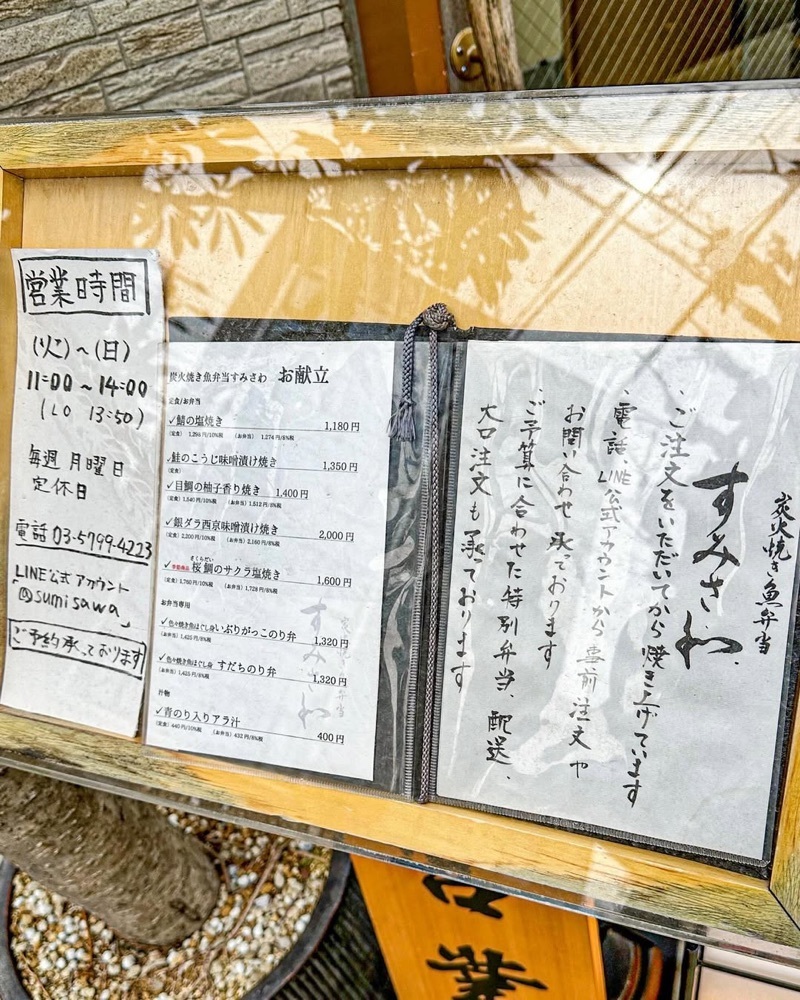 営業時間
(火)~(日)
11:00~14:00
(LO 13:50)
毎週 月曜日
定休日
電話 03-5799-4223
LINE公式アカウント
「@sumisawa」
ご予約承っております
炭火焼き魚弁当すみさわ お献立
定食/お弁当
✓鯖の塩焼き 1,180円
(定食) 1,298円/10%税 (お弁当) 1,274円/8%税
✓鮭のこうじ味噌漬け焼き 1,350円
(定食)
✓目鯛の柚子香り焼き 1,400円
(定食) 1,540円/10%税 (お弁当) 1,512円/8%税
✓銀ダラ西京味噌漬け焼き 2,000円
(定食) 2,200円/10%税 (お弁当) 2,160円/8%税
さくらだい
✓季節商品 桜鯛のサクラ塩焼き 1,600円
(定食) 1,760円/10%税 (お弁当) 1,728円/8%税
お弁当専用
✓色々焼き魚ほぐし身 いぶりがっこのり弁 1,320円
(お弁当) 1,425円/8%税
✓色々焼き魚ほぐし身 すだちのり弁 1,320円
(お弁当) 1,425円/8%税
汁物
✓青のり入りアラ汁 400円
(定食) 440円/10%税 (お弁当) 432円/8%税
炭火焼き魚弁当
すみさわ
炭火焼き魚弁当
すみさわ
・ご注文をいただいてから焼き上げています
・電話 LINE公式アカウントから 事前注文や
お問い合わせ 承っております
・ご予算に合わせた特別弁当、配送、
大口注文も承っております
業